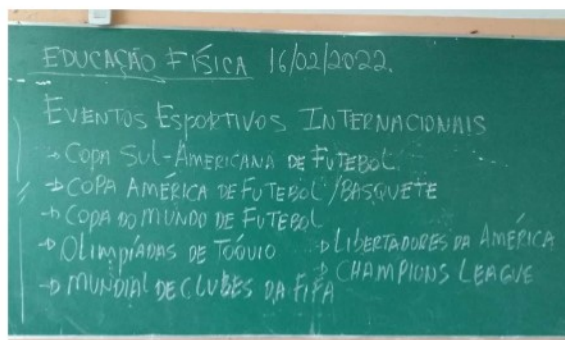 EDUCAÇÃO FÍSICA 16/02/2022.
EVENTOS ESPORTIVOS INTERNACIONAIS
→ COPA SUL-AMERICANA DE FUTEBOL
→ COPA AMÉRICA DE FUTEBOL/BASQUETE
→ COPA DO MUNDO DE FUTEBOL
→ OLIMPÍADAS DE TÓQUIO → LIBERTADORES DA AMÉRICA
→ MUNDIAL DE CLUBES DA FIFA → CHAMPIONS LEAGUE